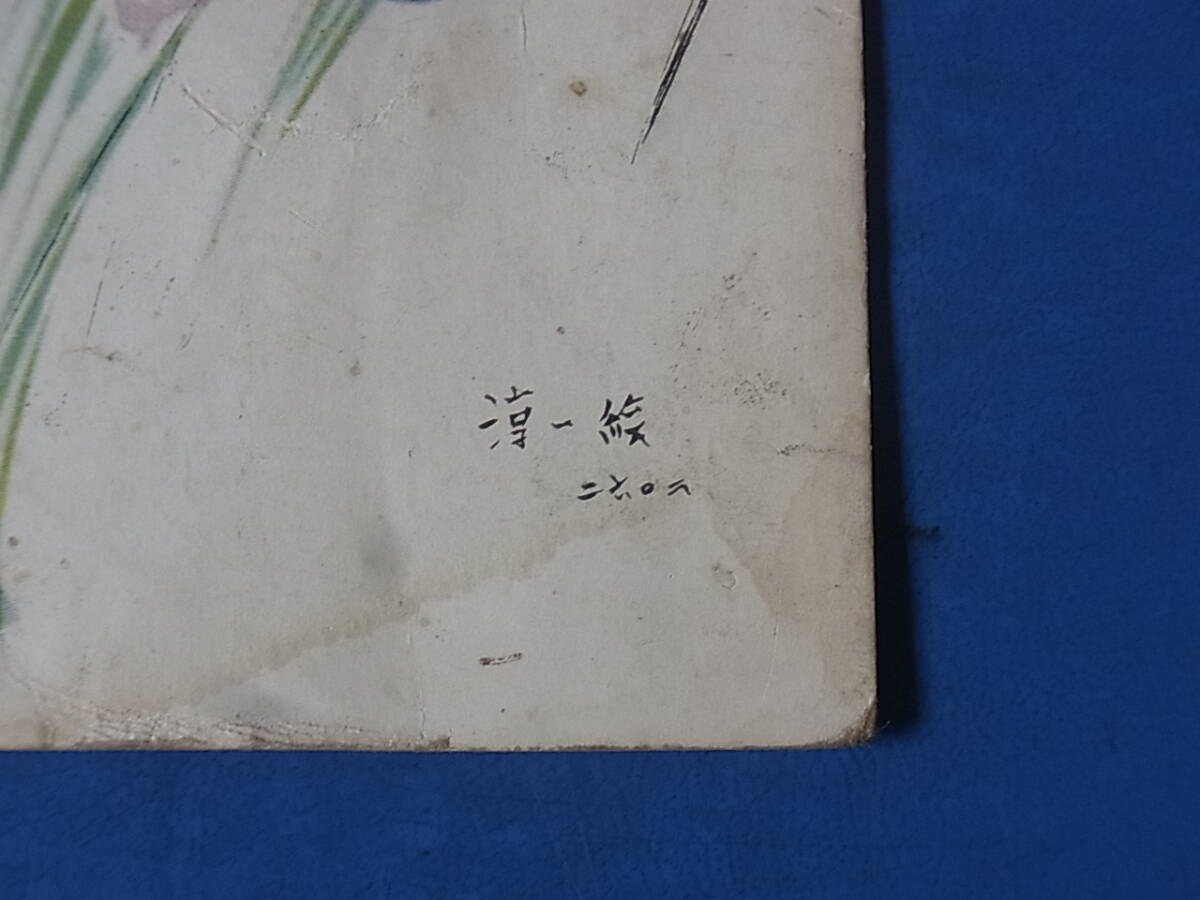 淳一絵
二六〇二